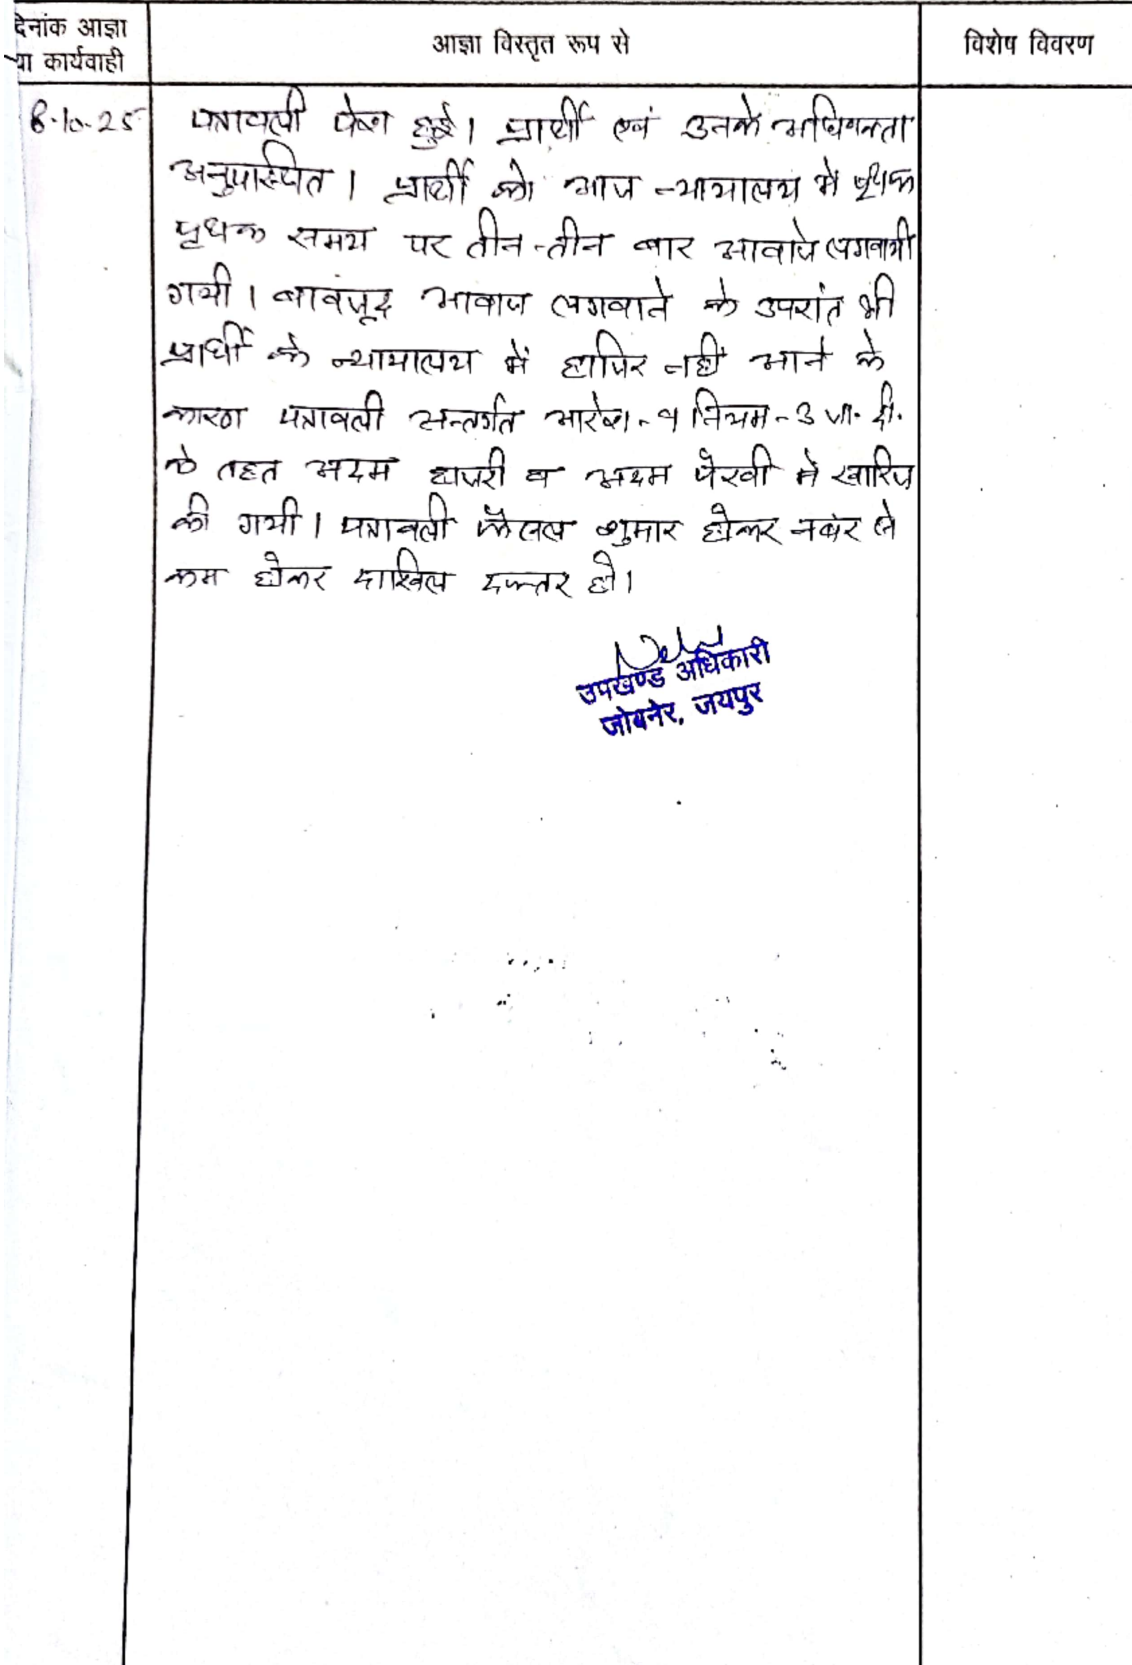 दिनांक आज्ञा
या कार्यवाही
आज्ञा विस्तृत रूप से
विशेष विवरण
8-10-25
पत्रावली पेश हुई। प्रार्थी एवं उनके अधिवक्ता
अनुपस्थित। प्रार्थी को आज न्यायालय में पृथक
पृथक समय पर तीन-तीन बार आवाजे लगवायी
गयी। बावजूद आवाज लगवाने के उपरांत भी
प्रार्थी के न्यायालय में हाजिर नहीं आने के
कारण पत्रावली अन्तर्गत आदेश-9 नियम-3 जा. दी.
के तहत अदम हाजरी व अदम पेरवी में खारिज
की गयी। पत्रावली फैसल शुमार होकर नम्बर से
कम होकर दाखिल दफ्तर हो।
उपखण्ड अधिकारी
जोबनेर, जयपुर